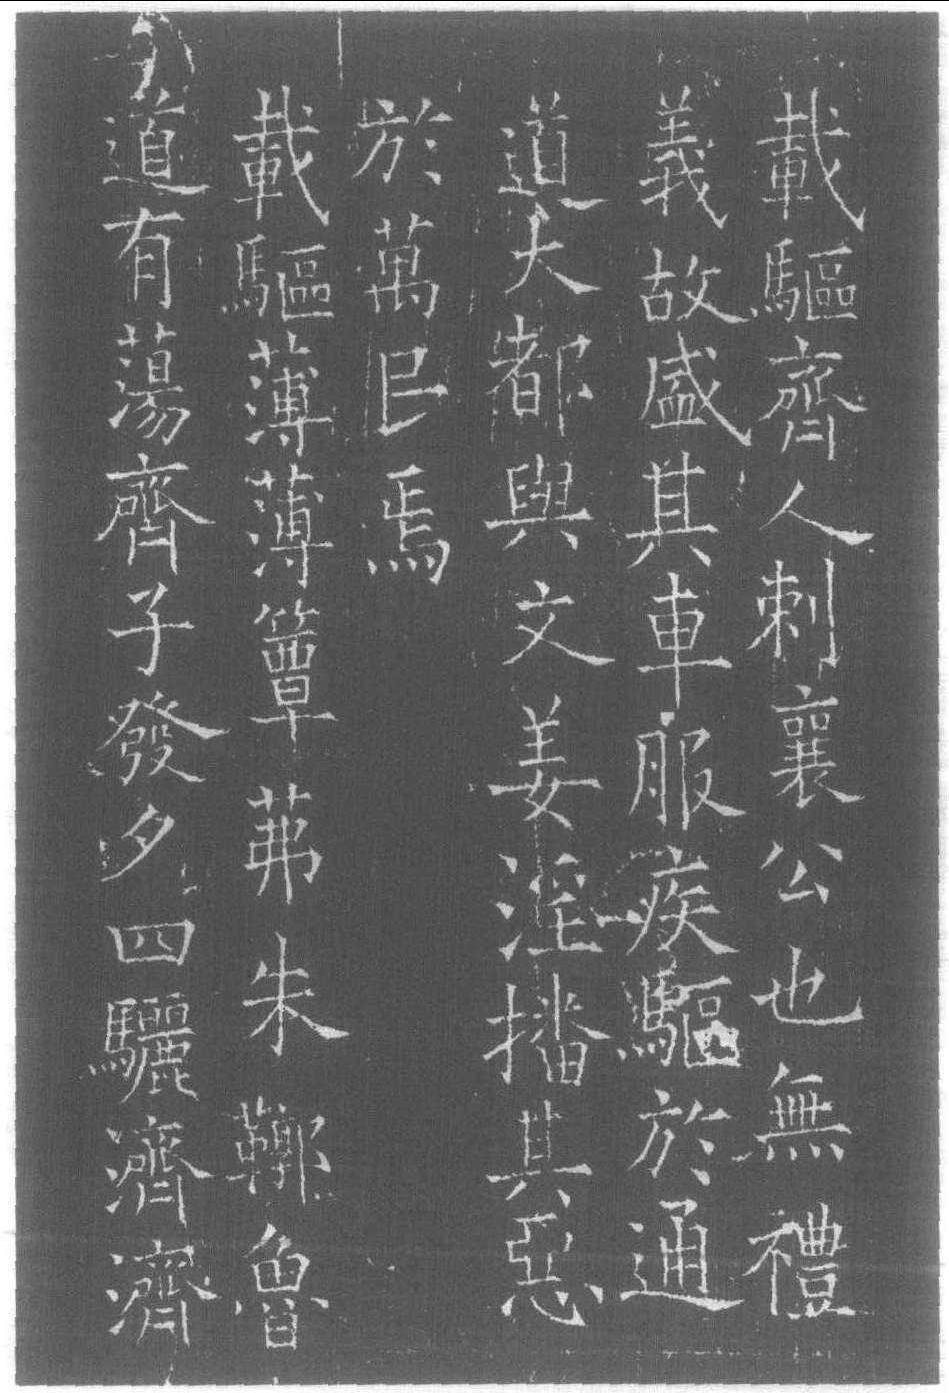 載驅齊人刺襄公也無禮
義故盛其車服疾驅於通
道大都與文姜淫播其惡
於萬民焉
載驅薄薄簟茀朱鞹魯
道有蕩齊子發夕四驪濟濟